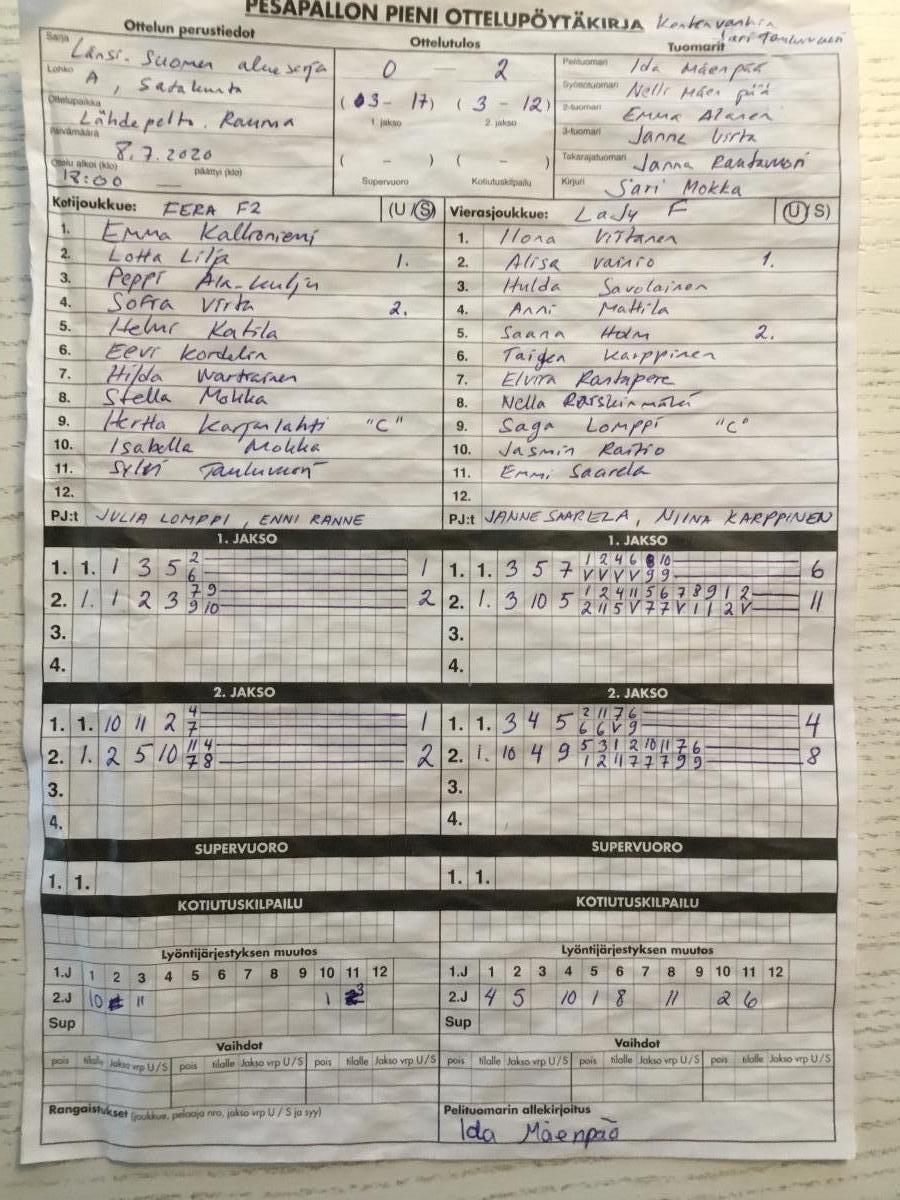 PESÄPALLON PIENI OTTELUPÖYTÄKIRJA Kentänvanhin
Sari Tauluvuori
Ottelun perustiedot
Sarja Länsi-Suomen aluesarja
Lohko A, Satakunta
Ottelupaikka Lähdepelto, Rauma
Päivämäärä 8.7.2020
Ottelu alkoi (klo) 18:00 päättyi (klo)
Ottelutulos
0 — 2
(03 - 17) (3 - 12)
1 jakso 2 jakso
( - ) ( - )
Supervuoro Kotiutuskilpailu
Tuomarit
Pelituomari Ida Mäenpää
Syöttötuomari Nelli Mäenpää
2-tuomari Emma Alanen
3-tuomari Janne Virta
Takarajatuomari Janna Rantavuori
Kirjuri Sari Mokka
Kotijoukkue: FERA F2 (U / S)
1. Emma Kallioniemi
2. Lotta Lilja 1.
3. Peppi Ala-Kulju
4. Sofia Virta 2.
5. Helmi Katila
6. Eevi Kordelin
7. Hilda Wartiainen
8. Stella Mokka
9. Hertta Karjalahti "C"
10. Isabella Mokka
11. Sylvi Tauluvuori
12.
PJ:t JULIA LOMPPI, ENNI RANNE
Vierasjoukkue: Lady F (U / S)
1. Ilona Virtanen
2. Alisa Vainio 1.
3. Hulda Savolainen
4. Anni Mattila
5. Saana Holm 2.
6. Taigen Karppinen
7. Elvira Rantapere
8. Nella Koiskinmäki
9. Saga Lomppi "C"
10. Jasmin Raitio
11. Emmi Saarela
12.
PJ:t JANNE SAARELA, NIINA KARPPINEN
1. JAKSO
2 
1. 1. 1 3 5 6 1
7 9
2. 1. 1 2 3 9 10 2
3.
4.
1. JAKSO
1 2 4 6 8 10
1. 1. 3 5 7 V V V V 9 9 6
1 2 4 11 5 6 7 8 9 1 2
2. 1. 3 10 5 2 11 5 V 7 7 V 1 1 2 V 11
3.
4.
2. JAKSO
4
1. 1. 10 11 2 7 1
11 4
2. 1. 2 5 10 7 8 2
3.
4.
2. JAKSO
2 11 7 6
1. 1. 3 4 5 6 6 V 9 4
5 3 1 2 10 11 7 6
2. 1. 10 4 9 1 2 11 7 7 7 9 9 8
3.
4.
SUPERVUORO
1. 1.
SUPERVUORO
1. 1.
KOTIUTUSKILPAILU
KOTIUTUSKILPAILU
Lyöntijärjestyksen muutos
1.J 1 2 3 4 5 6 7 8 9 10 11 12
2.J 10 11 1 3
Sup
Lyöntijärjestyksen muutos
1.J 1 2 3 4 5 6 7 8 9 10 11 12
2.J 4 5 10 1 8 11 2 6
Sup
Vaihdot
pois tilalle Jakso vrp U / S pois tilalle Jakso vrp U / S pois tilalle Jakso vrp U / S
Vaihdot
pois tilalle Jakso vrp U / S pois tilalle Jakso vrp U / S pois tilalle Jakso vrp U / S
Rangaistukset (joukkue, pelaaja nro, jakso vrp U / S ja syy)
Pelituomarin allekirjoitus
Ida Mäenpää